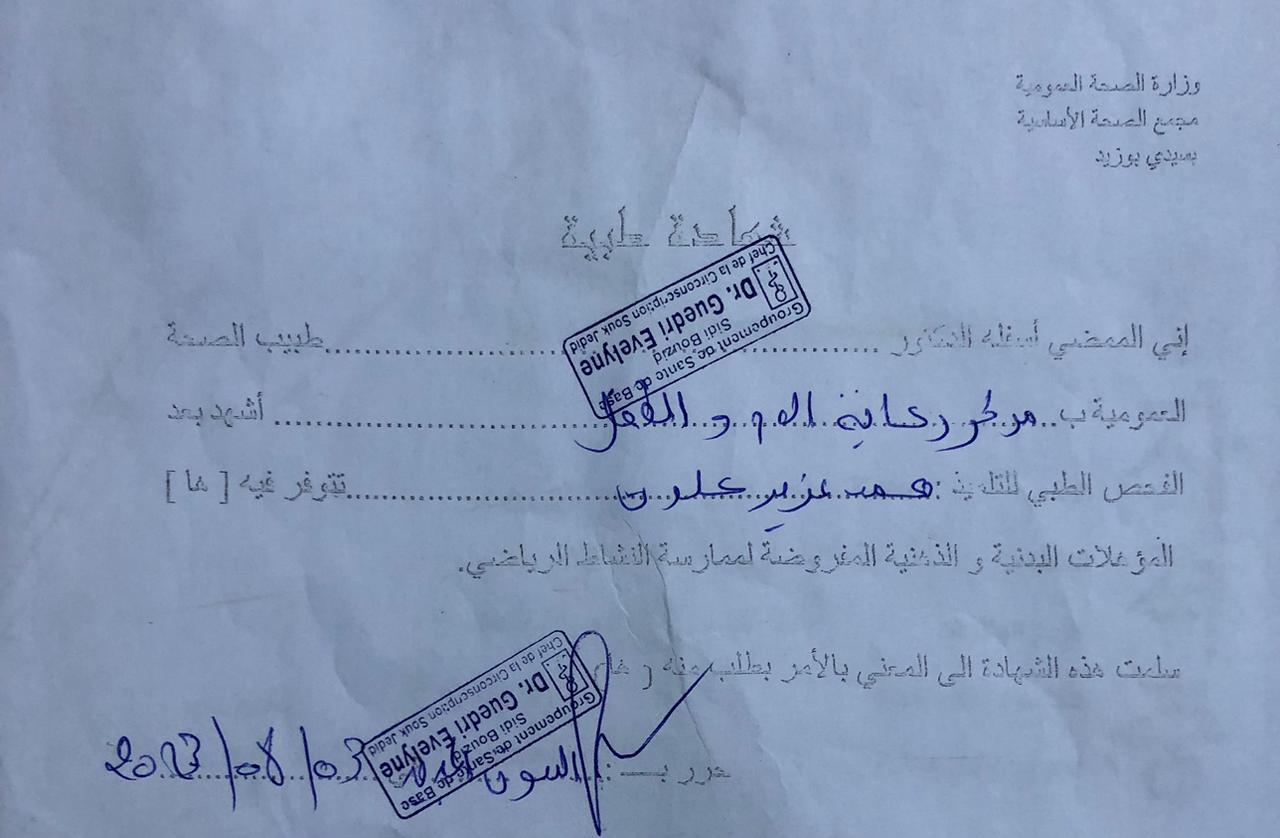 وزارة الصحة العمومية
مجمع الصحة الأساسية
بسيدي بوزيد
شهادة طبية
Groupement de Sante de Base
Sidi Bouzid
Dr. Guedri Evelyne
Chef de la Circonscription Souk Jedid
إني الممضي أسفله الدكتور ........ طبيب الصحة
العمومية ب.. مركز رعاية الام و الطفل ........ أشهد بعد
الفحص الطبي للتلميذ : محمد عزيز علون ........ تتوفر فيه [ ها ]
المؤهلات البدنية و الذهنية المفروضة لممارسة النشاط الرياضي.
سلمت هذه الشهادة الى المعني بالأمر بطلب منه ( ها )
Groupement de Sante de Base
Sidi Bouzid
Dr. Guedri Evelyne
Chef de la Circonscription Souk Jedid
حرر بـ : السوق 2023/08/03